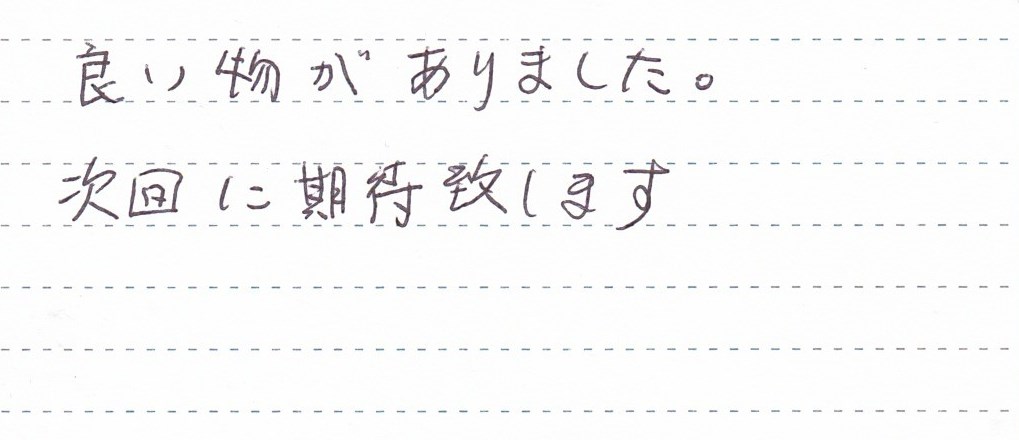 良い物がありました。
次回に期待致します